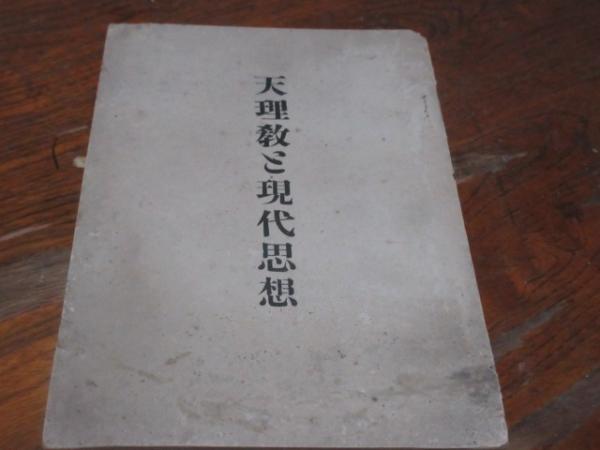 天理教と現代思想